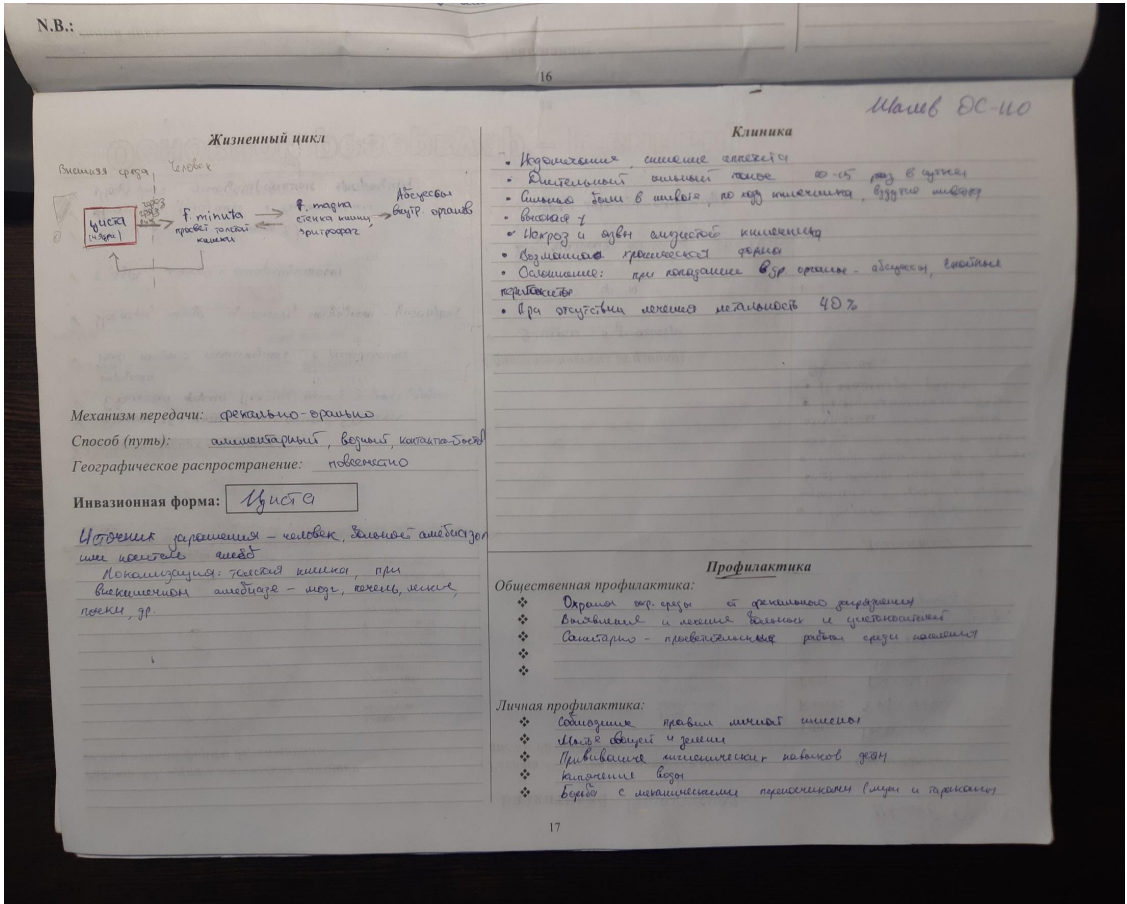 N.B.:
16
Шалев ОС-110
Жизненный цикл
Внешняя среда, Человек
циста
(4 ядра)
f. minuta
просвет толстой
кишки
f. magna
стенка кишки,
эритрофаг
Абсцессы
внутр. органов
Механизм передачи: фекально-орально
Способ (путь): алиментарный, водный, контактно-бытов
Географическое распространение: повсеместно
Инвазионная форма: Циста
Источник заражения – человек, больной амебиазом
или носитель амеб
Локализация: толстая кишка, при
внекишечном амебиазе – мозг, печень, легкие,
почки, др.
Клиника
• Недомогание, снижение аппетита
• Длительный сильный понос 10-15 раз в сутки
• Сильные боли в животе, по ходу кишечника, вздутие живота
• Высокая t
• Некроз и язвы слизистой кишечника
• Возможна хроническая форма
• Осложнение: при попадании в др. органы – абсцессы, гнойные
перитониты
• При отсутствии лечения летальность 40%
Профилактика
Общественная профилактика:
❖ Охрана окр. среды от фекального загрязнения
❖ Выявление и лечение больных и цистоносителей
❖ Санитарно - просветительная работа среди населения
❖
❖
Личная профилактика:
❖ Соблюдение правил личной гигиены
❖ Мытье овощей и зелени
❖ Прививание гигиенических навыков детям
❖ Кипячение воды
❖ Борьба с механическими переносчиками (мухи и тараканы
17